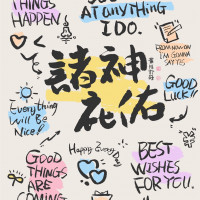 THINGS
HAPPEN
AT anything
I DO.
FROM NOW ON
I'M GONNA
SAY YES
諸神
庇佑
GOOD
LUCK!!
Everything
Will Be
Nice!
Happy Every Day!
GOOD
THINGS
ARE
COMING
BEST
WISHES
FOR YOU.